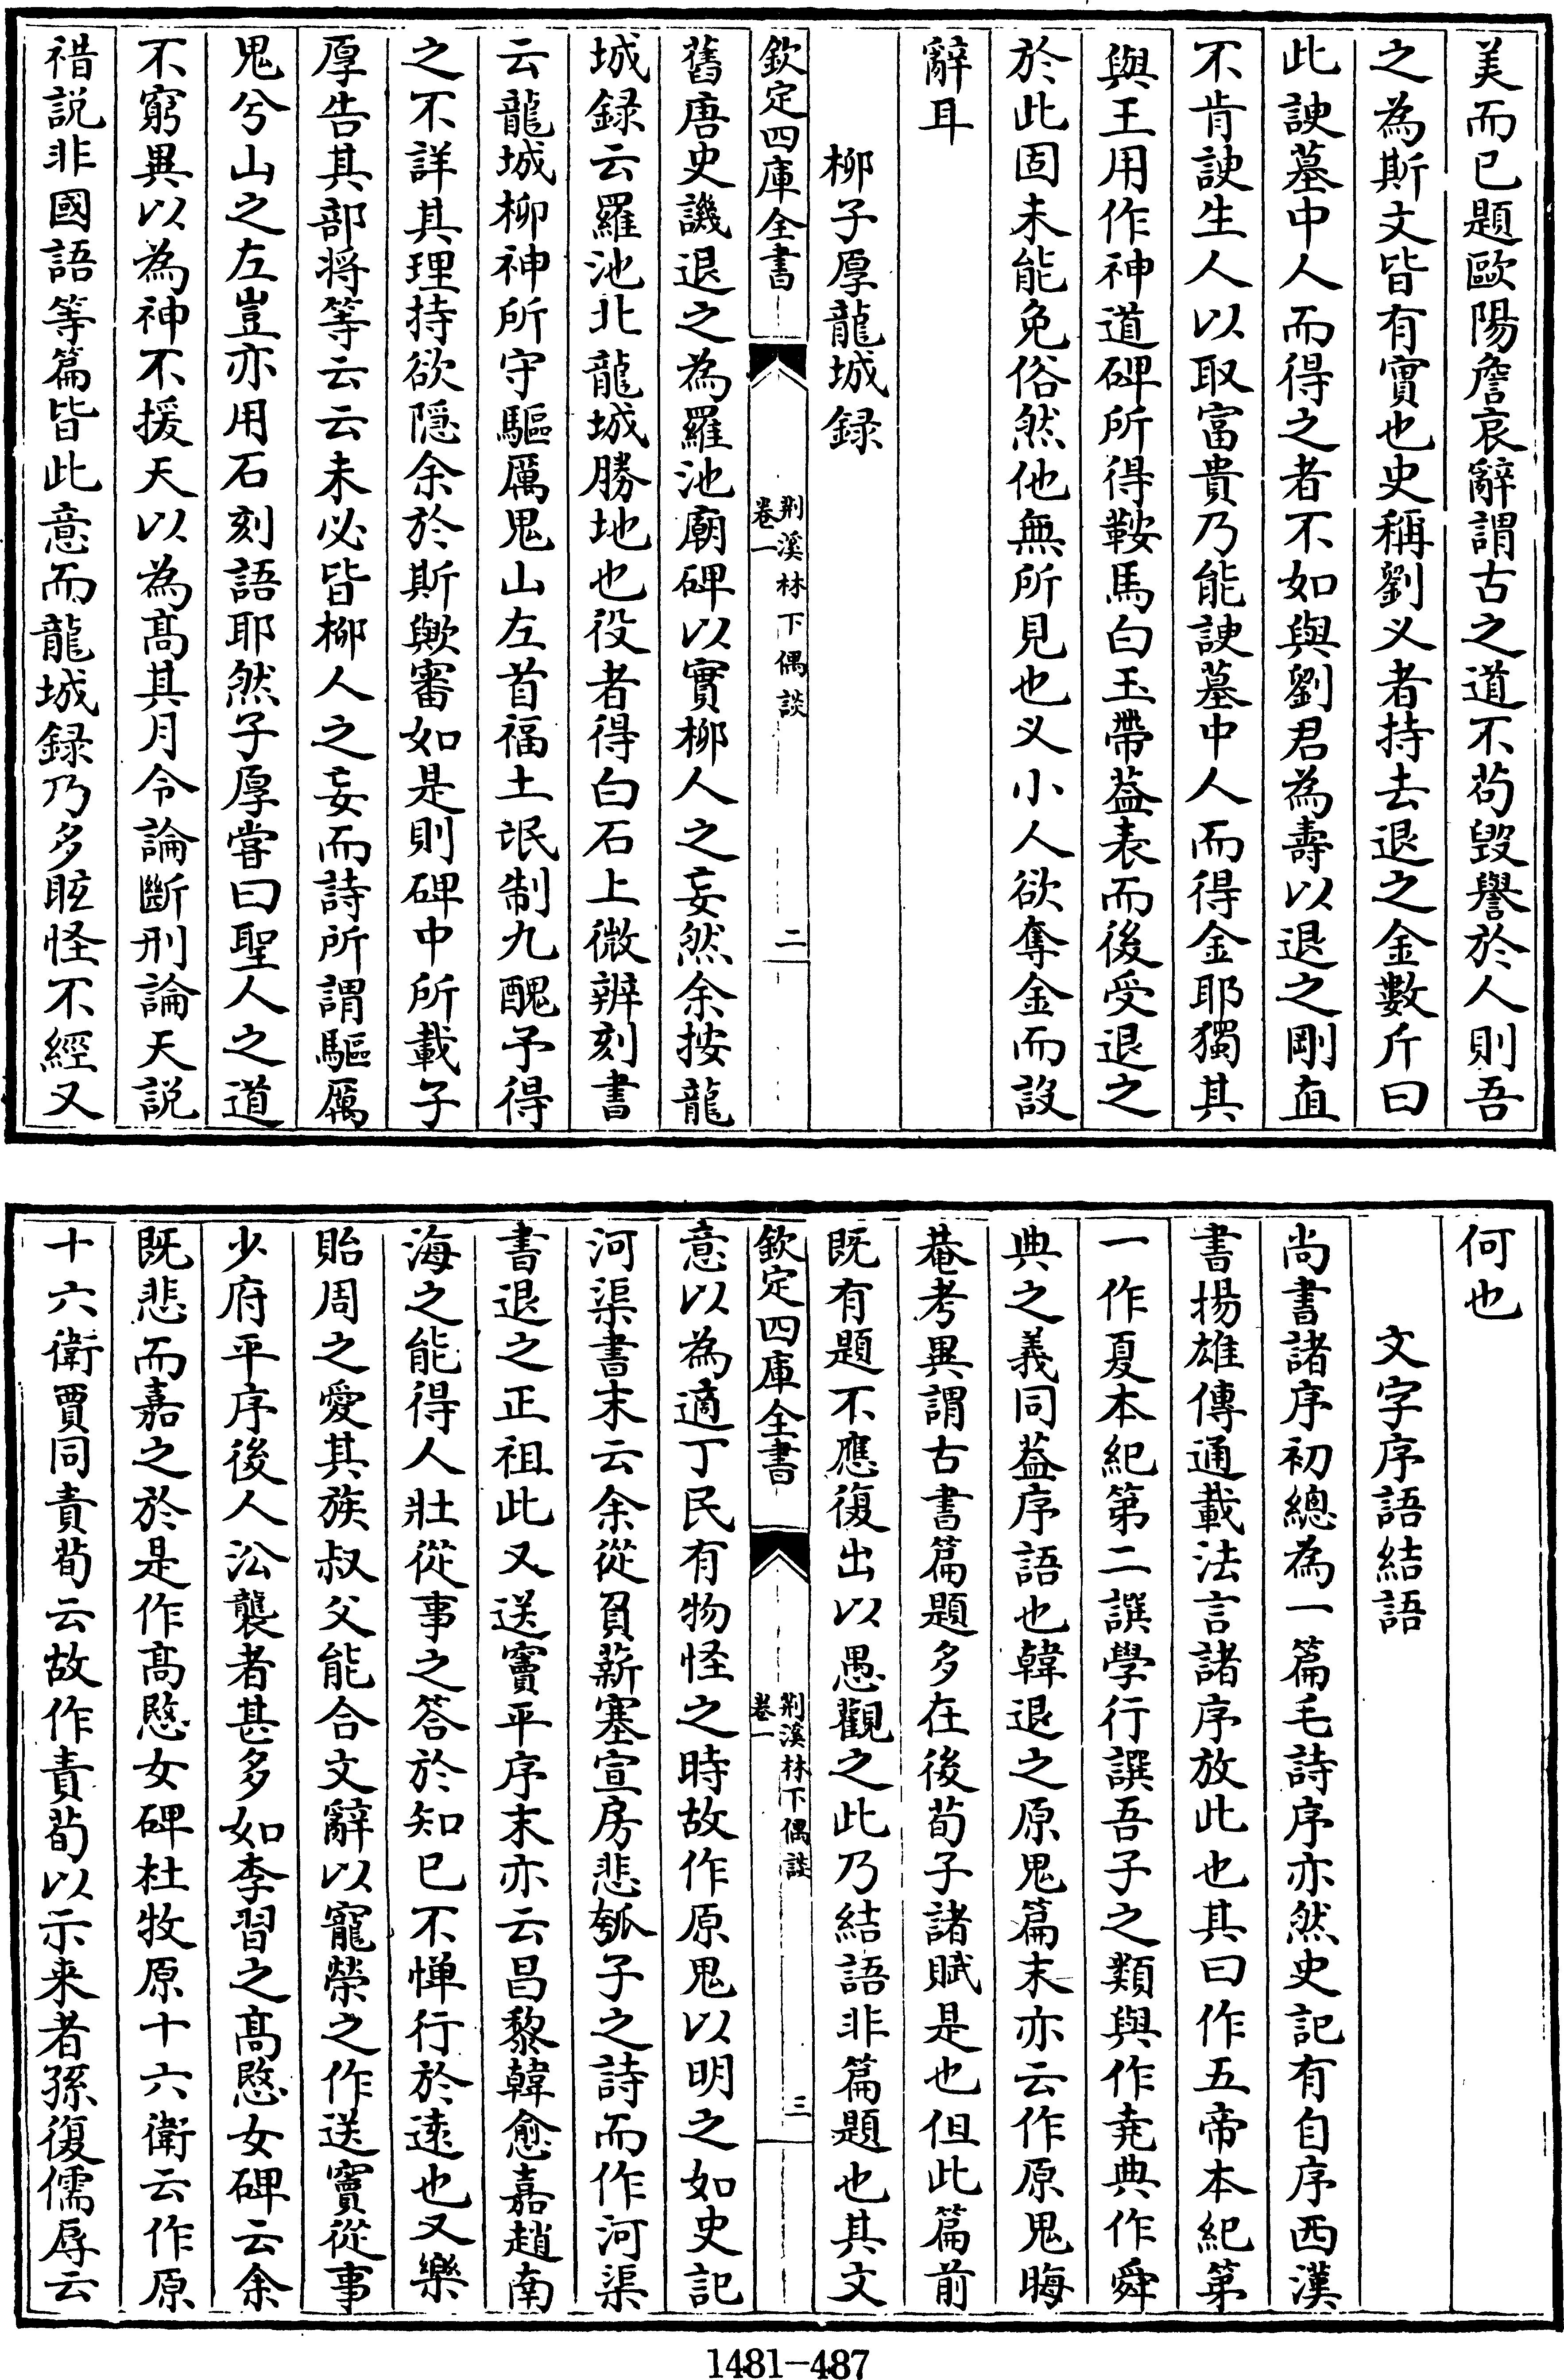 美而已題歐陽詹哀辭謂古之道不茍毀譽於人則吾
之為斯文皆有實也史稱劉乂者持去退之金數斤曰
此諛墓中人而得之者不如與劉君為壽以退之剛直
不肯諛生人以取富貴乃能諛墓中人而得金耶獨其
與王用作神道碑所得鞍馬白玉帶葢表而後受退之
於此固未能免俗然他無所見也乂小人欲奪金而設
辭耳
柳子厚龍城録
欽定四庫全書
荆溪林下偶談
卷一
二
舊唐史譏退之為羅池廟碑以實柳人之妄然余按龍
城録云羅池北龍城勝地也役者得白石上微辨刻書
云龍城柳神所守驅厲鬼山左首福土氓制九醜予得
之不詳其理持欲隠余於斯歟審如是則碑中所載子
厚告其部將等云云未必皆柳人之妄而詩所謂驅厲
鬼兮山之左豈亦用石刻語耶然子厚嘗曰聖人之道
不窮異以為神不援天以為髙其月令論斷刑論天説
䄍説非國語等篇皆此意而龍城録乃多眩怪不經又
何也
文字序語結語
尚書諸序初總為一篇毛詩序亦然史記有自序西漢
書揚雄傳通載法言諸序放此也其曰作五帝本紀第
一作夏本紀第二譔學行譔吾子之類與作堯典作舜
典之義同葢序語也韓退之原鬼篇末亦云作原鬼晦
菴考異謂古書篇題多在後荀子諸賦是也但此篇前
既有題不應復出以愚觀之此乃結語非篇題也其文
欽定四庫全書
荆溪林下偶談
卷一
三
意以為適丁民有物怪之時故作原鬼以明之如史記
河渠書末云余從負薪塞宣房悲瓠子之詩而作河渠
書退之正祖此又送竇平序末亦云昌黎韓愈嘉趙南
海之能得人壯從事之答於知已不憚行於逺也又樂
貽周之愛其族叔父能合文辭以寵榮之作送竇從事
少府平序後人沿襲者甚多如李習之髙愍女碑云余
既悲而嘉之於是作髙愍女碑杜牧原十六衛云作原
十六衛賈同責荀云故作責荀以示来者孫復儒辱云
1481-487